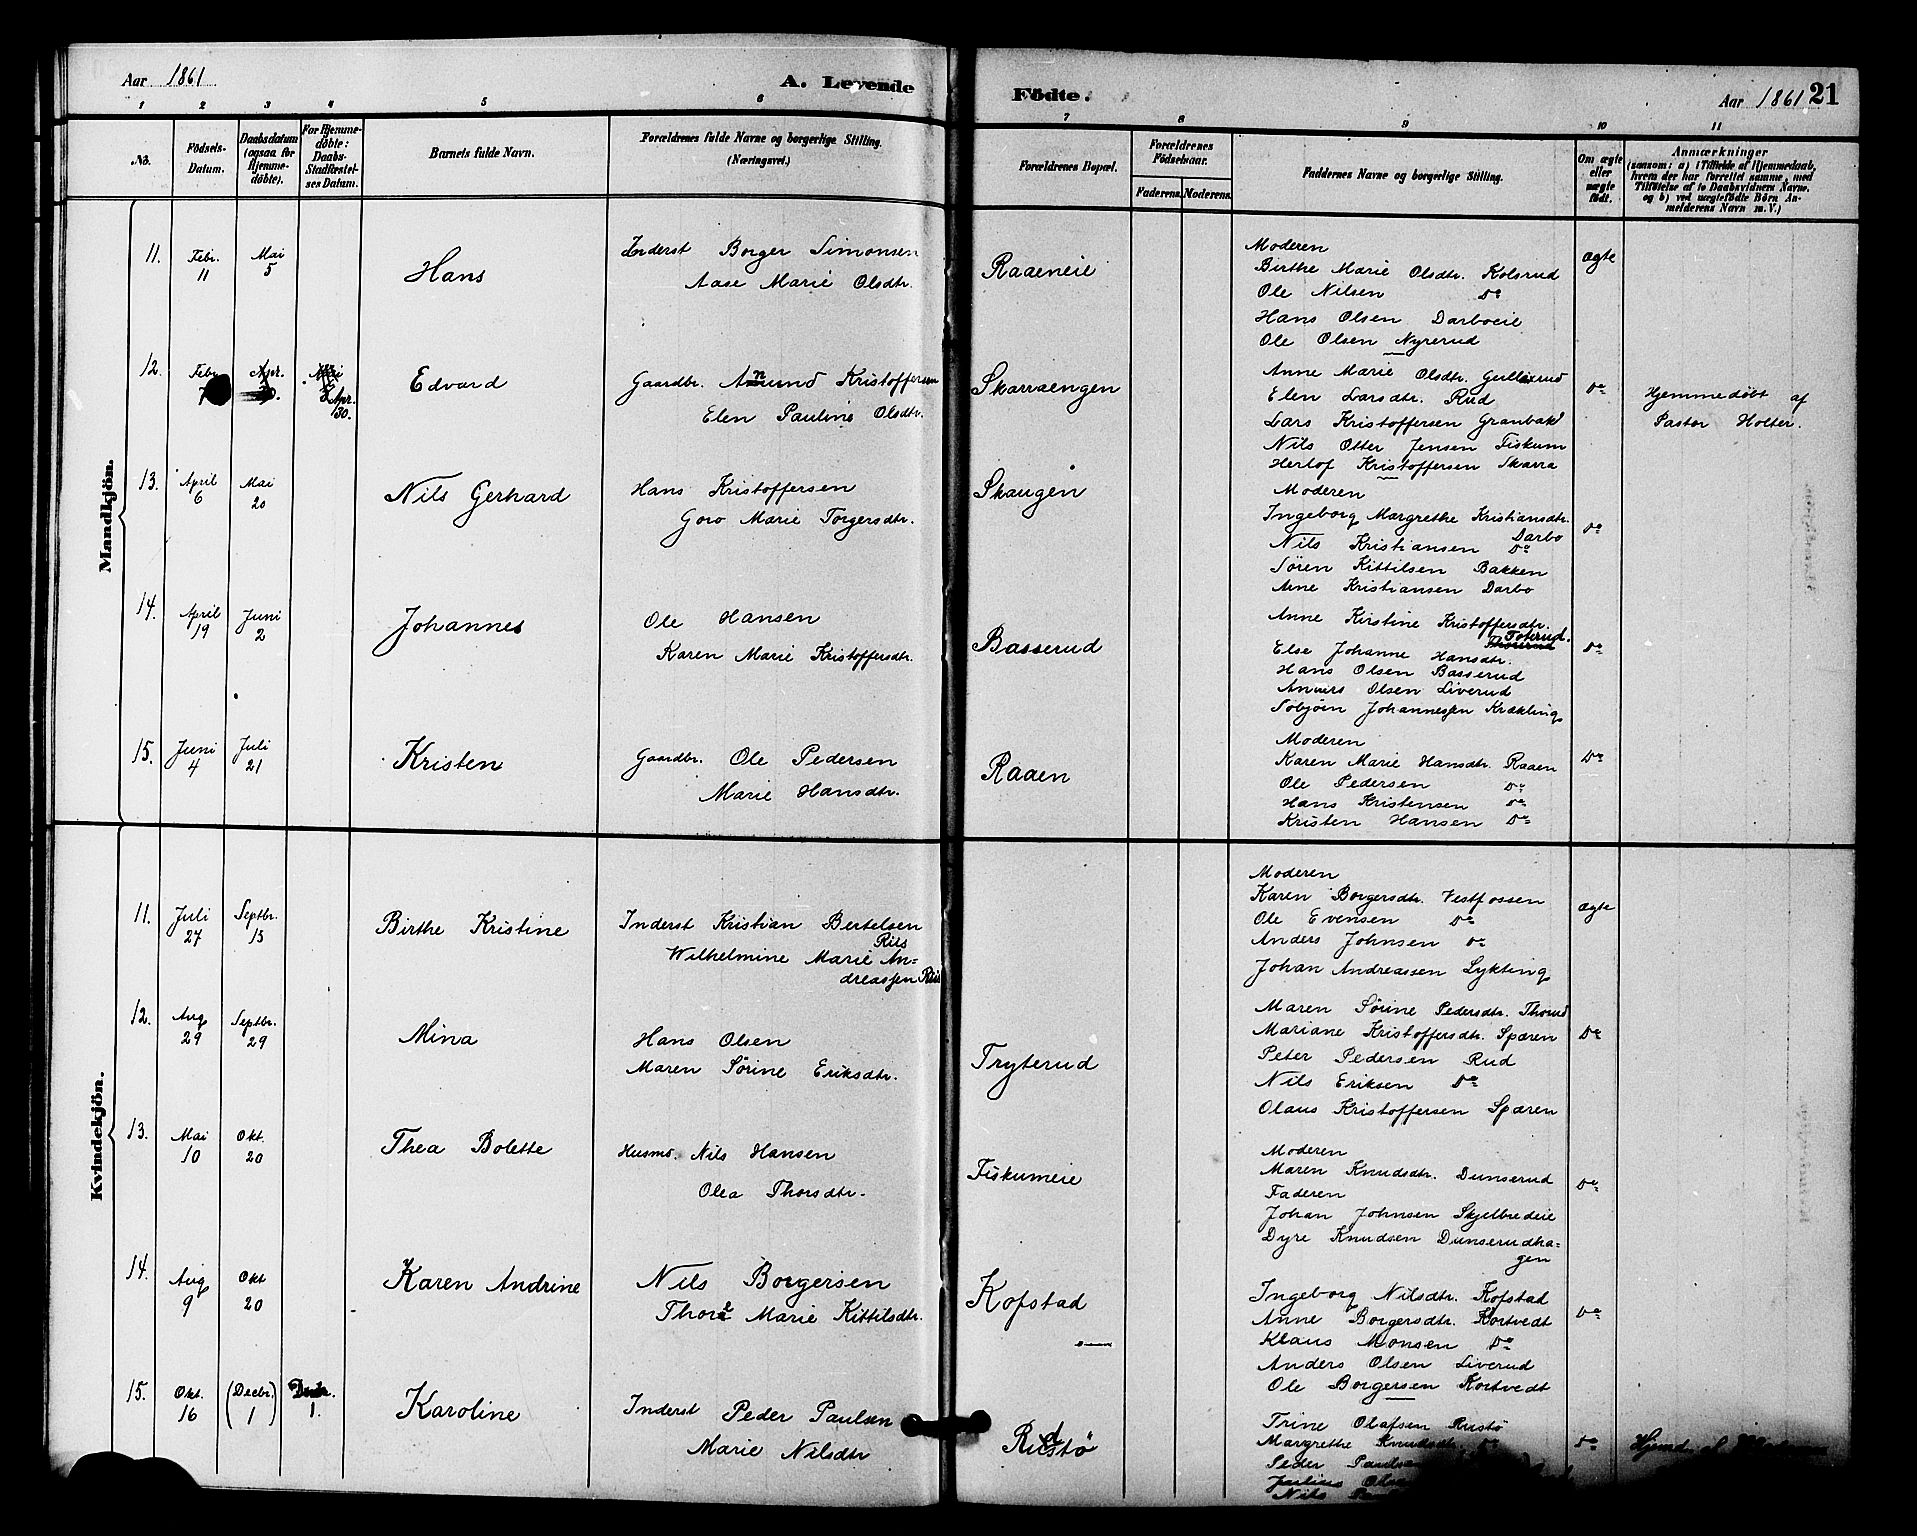 Aar 1861
A. Levende
Födte.
Aar 1861 21
1 2 3 4 5 6 7 8 9 10 11
No. Födsels-Datum. Daabsdatum (ogsaa for Hjemme-döbte). For Hjemme-döbte: Daabs-Stadfæstel-ses Datum. Barnets fulde Navn. Forældrenes fulde Navne og borgerlige Stilling. (Næringsvei.) Forældrenes Bopæl. Forældrenes Födselsaar. Faderens. Moderens. Faddernes Navne og borgerlige Stilling. Om ægte eller uægte födt. Anmærkninger (saasom: a) i Tilfælde af Hjemmedaab, hvem der har forrettet samme, med Tilföielse af to Daabsvidners Navne. og b) ved uægtefödte Börn An-melderens Navn m. V.)
Mandkjön.
11. Febr. 11 Mai 5 Hans Inderst Borger Simonsen
Aase Marie Olsdtr.
Raaeneie
Moderen
Birthe Marie Olsdtr. Kolsrud
Ole Nilsen Do
Hans Olsen Darboeie
Ole Olsen Nyrerud
ægte
12. Febr. 7 Apr. Apr. 30. Edvard Gaardbr. Anund Kristoffersen
Elen Pauline Olsdtr.
Skarraengen
Anne Marie Olsdtr. Gullixrud
Elen Larsdtr. Rud
Lars Kristoffersen Granbak
Nils Otter Jensen Fiskum
Hertof Kristoffersen Skarra
Do
Hjemmedöbt af
Pastor Holter.
13. April 6 Mai 20 Nils Gerhard Hans Kristoffersen
Goro Marie Torgersdtr.
Skaugen
Moderen
Ingeborg Margrethe Kristiansdtr. Darbo
Nils Kristiansen Do
Sören Kittilsen Bakken
Arne Kristiansen Darbo
Do
14. April 19 Juni 2 Johannes Ole Hansen
Karen Marie Kristoffersdtr.
Basserud
Anne Kirstine Kristoffersdtr. Foterud.
Else Johanne Hansdtr.
Hans Olsen Basserud
Anders Olsen Liverud
Tobjöin Johannessen Krækling
Do
15. Juni 4 Juli 21 Kristen Gaardbr. Ole Pedersen
Marie Hansdtr.
Raaen
Moderen
Karen Marie Hansdtr. Raaen
Ole Pedersen Do
Hans Kristensen Do
Kristen Hansen Do
Do
Kvindekjön.
11. Juli 27 Septbr. 15 Birthe Kristine Inderst Kristian Bertelsen Riis
Wilhelmine Marie An=
dreassen Riis
Moderen
Karen Borgersdtr. Vestfossen
Ole Evensen Do
Anders Johnsen Do
Johan Andreassen Lykting
ægte
12. Aug 29 Septbr. 29 Mina Hans Olsen
Maren Sörine Eriksdtr.
Tryterud
Maren Sörine Pedersdtr. Thorud
Mariane Kristoffersdtr. Sparen
Peter Pedersen Rud
Nils Eriksen Do
Olaus Kristoffersen Sparen
Do
13. Mai 10 Okt. 20 Thea Bolette Husmd. Nils Hansen
Olea Thorsdtr.
Fiskumeie
Moderen
Maren Knudsdtr. Dunserud
Faderen
Johan Johnsen Skjelbredeie
Dyre Knudsen Dunserudha=
gen
Do
14. Aug 9 Okt 20 Karen Andrine Nils Borgersen
Thore Marie Kittilsdtr.
Kofstad
Ingeborg Nilsdtr. Kofstad
Anne Borgersdtr. Kortvedt
Klaus Monsen Do
Anders Olsen Liverud
Ole Borgersen Kortvedt
Do
15. Okt. 16 (Decbr. 1) Decbr. 1. Karoline Inderst Peder Paulsen
Marie Nilsdtr
Rudstö
Trine Olafsen Rustö
Margrethe Knudsdtr. Do
Peder Paulsen
Nils
Do